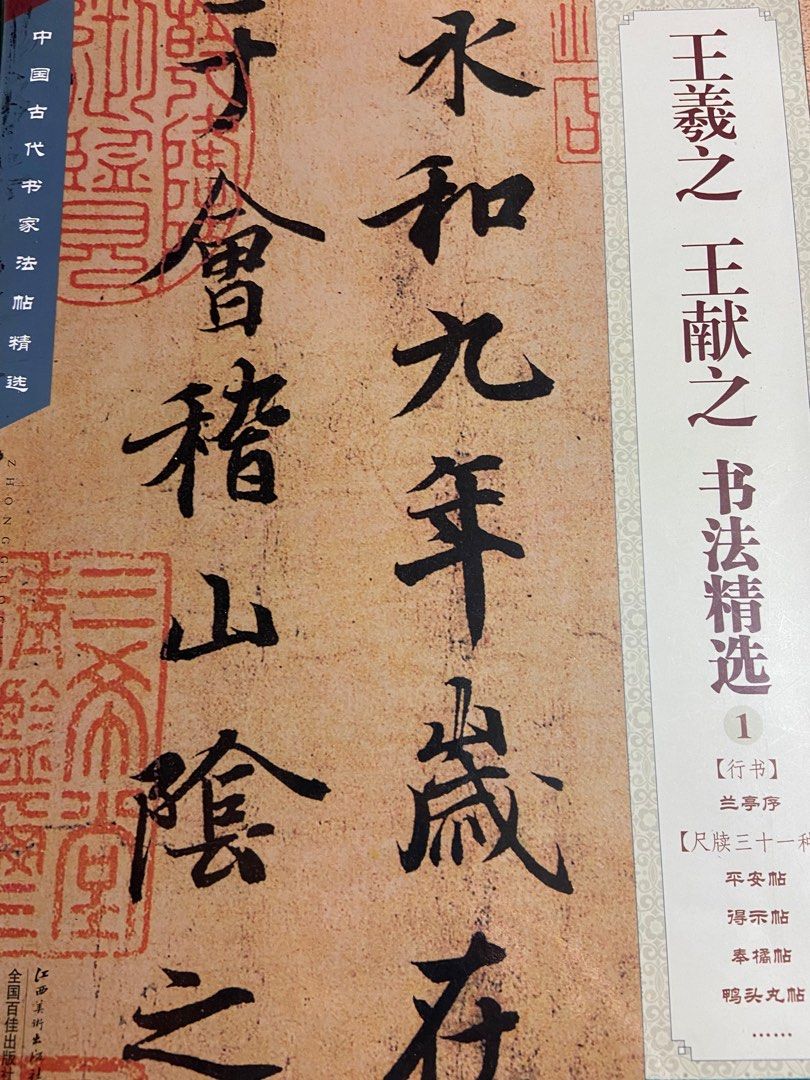 王羲之 王献之 书法精选
1
【行书】
兰亭序
【尺牍三十一种
平安帖
得示帖
奉橘帖
鸭头丸帖
……
永和九年歲在
于會稽山陰之
中国古代书家法帖精选
ZHONGGUO
三希堂
江西美術出版社
全国百佳出版社